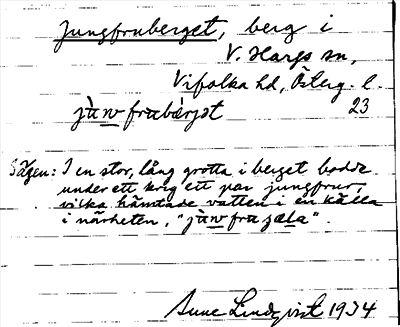 Jungfruberget, berg i
V. Hargs sn,
Vifolka hd, Österg. l.
jùŋfrubærjət 23
Sägen: I en stor, lång grotta i berget bodde
under ett krig ett par jungfrur,
vilka hämtade vatten i en källa
i närheten, "jùŋfru
Sune Lindqvist 1934